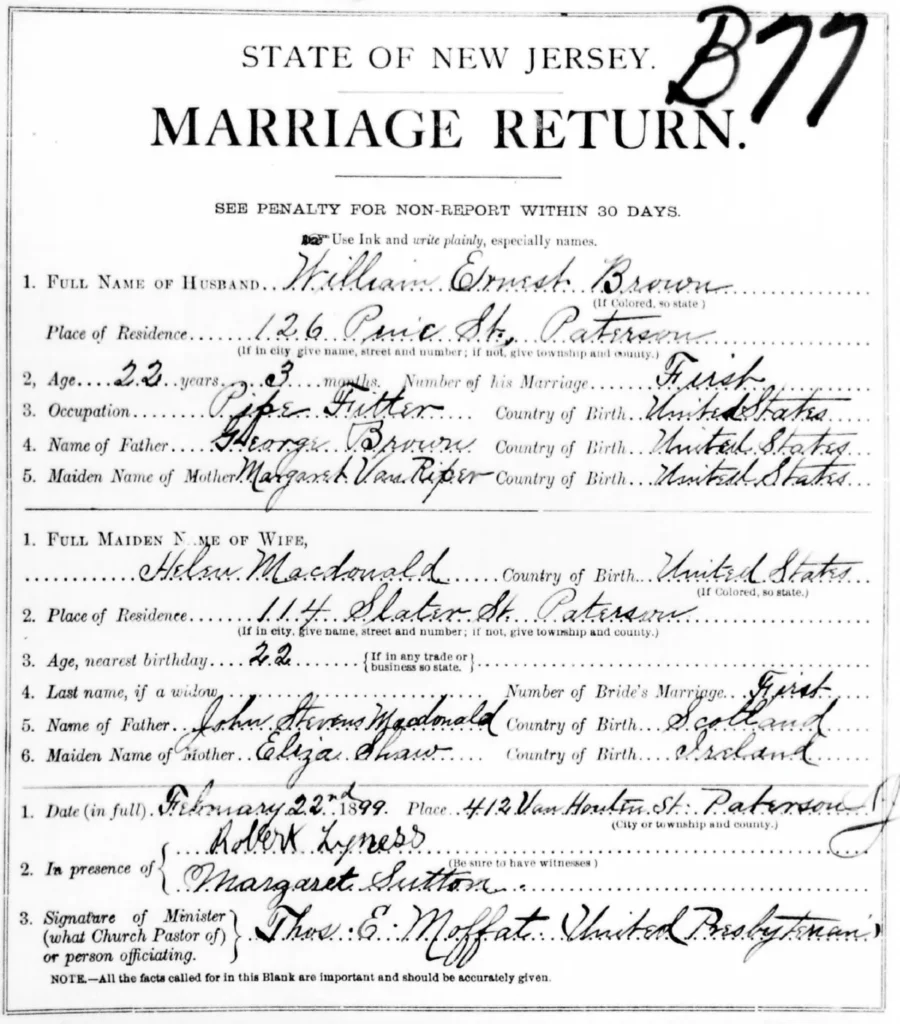 B77
STATE OF NEW JERSEY.
MARRIAGE RETURN.
SEE PENALTY FOR NON-REPORT WITHIN 30 DAYS.
Use Ink and write plainly, especially names.
1. FULL NAME OF HUSBAND.. William Ernest Brown
(If Colored, so state)
Place of Residence...... 126 Pine St., Paterson
(If in city, give name, street and number; if not, give township and county.)
2, Age.... 22 ..years.. 3 ...months. Number of his Marriage..... First
3. Occupation....... Pipe Fitter .... Country of Birth.. United States
4. Name of Father.... George Brown Country of Birth... United States
5. Maiden Name of Mother Margaret Van Riper Country of Birth... United States
1. FULL MAIDEN NAME OF WIFE,
............ Helen Macdonald ...... Country of Birth.. United States
(If Colored, so state.)
2. Place of Residence...... 114 Slater St. Paterson
(If in city, give name, street and number; if not, give township and county.)
3. Age, nearest birthday.... 22 ........ {If in any trade or business so state.}
4. Last name, if a widow........ Number of Bride's Marriage... First
5. Name of Father... John Stevens Macdonald Country of Birth... Scotland
6. Maiden Name of Mother.. Eliza Shaw Country of Birth.... Ireland
1. Date (in full). February 22nd 1899. Place. 412 Van Houten St. Paterson NJ
(City or township and county.)
2. In presence of { Robert Lyness
(Be sure to have witnesses)
Margaret Sutton
3. Signature of Minister
(what Church Pastor of) } Thos. E. Moffat. United Presbyterian
or person officiating.
NOTE.—All the facts called for in this Blank are important and should be accurately given.